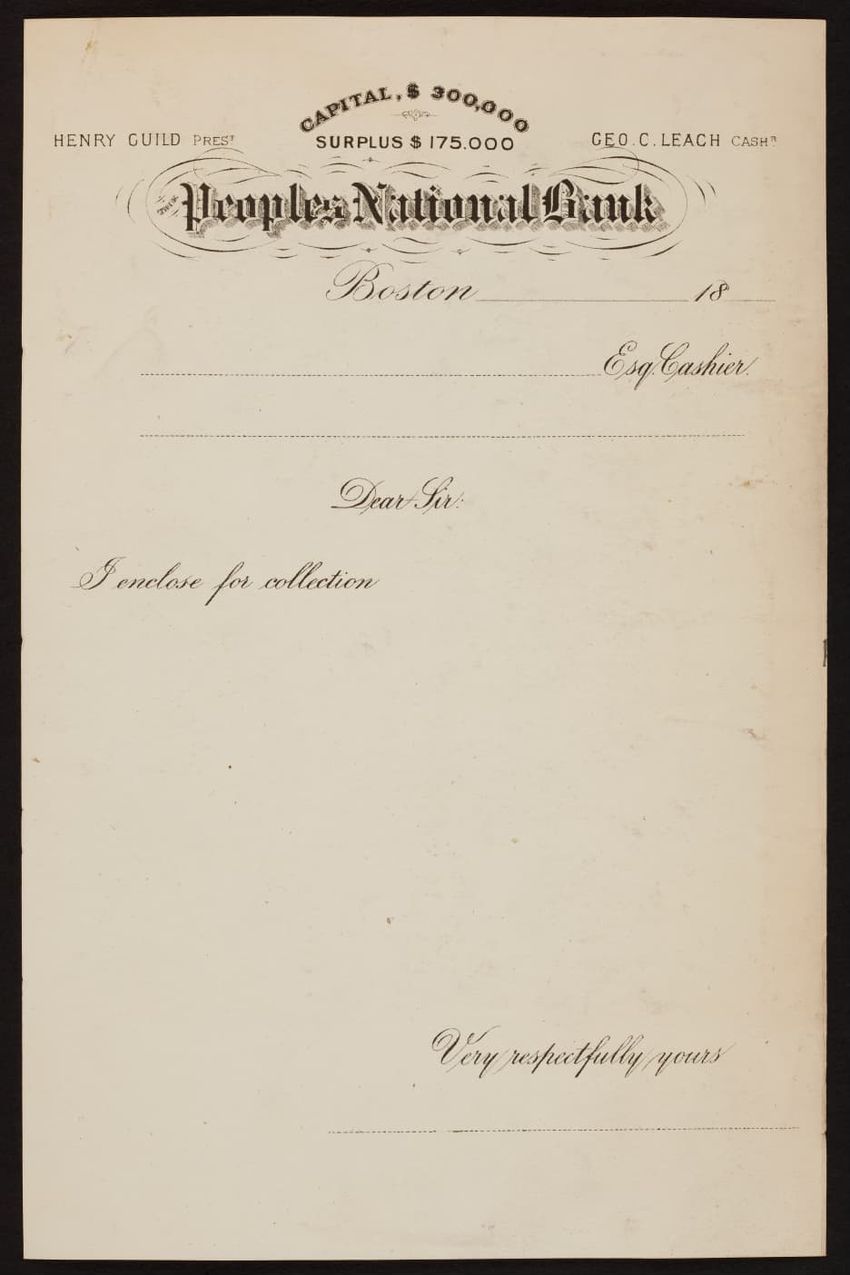 CAPITAL, $ 300,000
HENRY GUILD PREST SURPLUS $ 175.000 GEO. C. LEACH CASHR
THE Peoples National Bank
Boston 18
Esq. Cashier.
Dear Sir:
I enclose for collection
Very respectfully yours